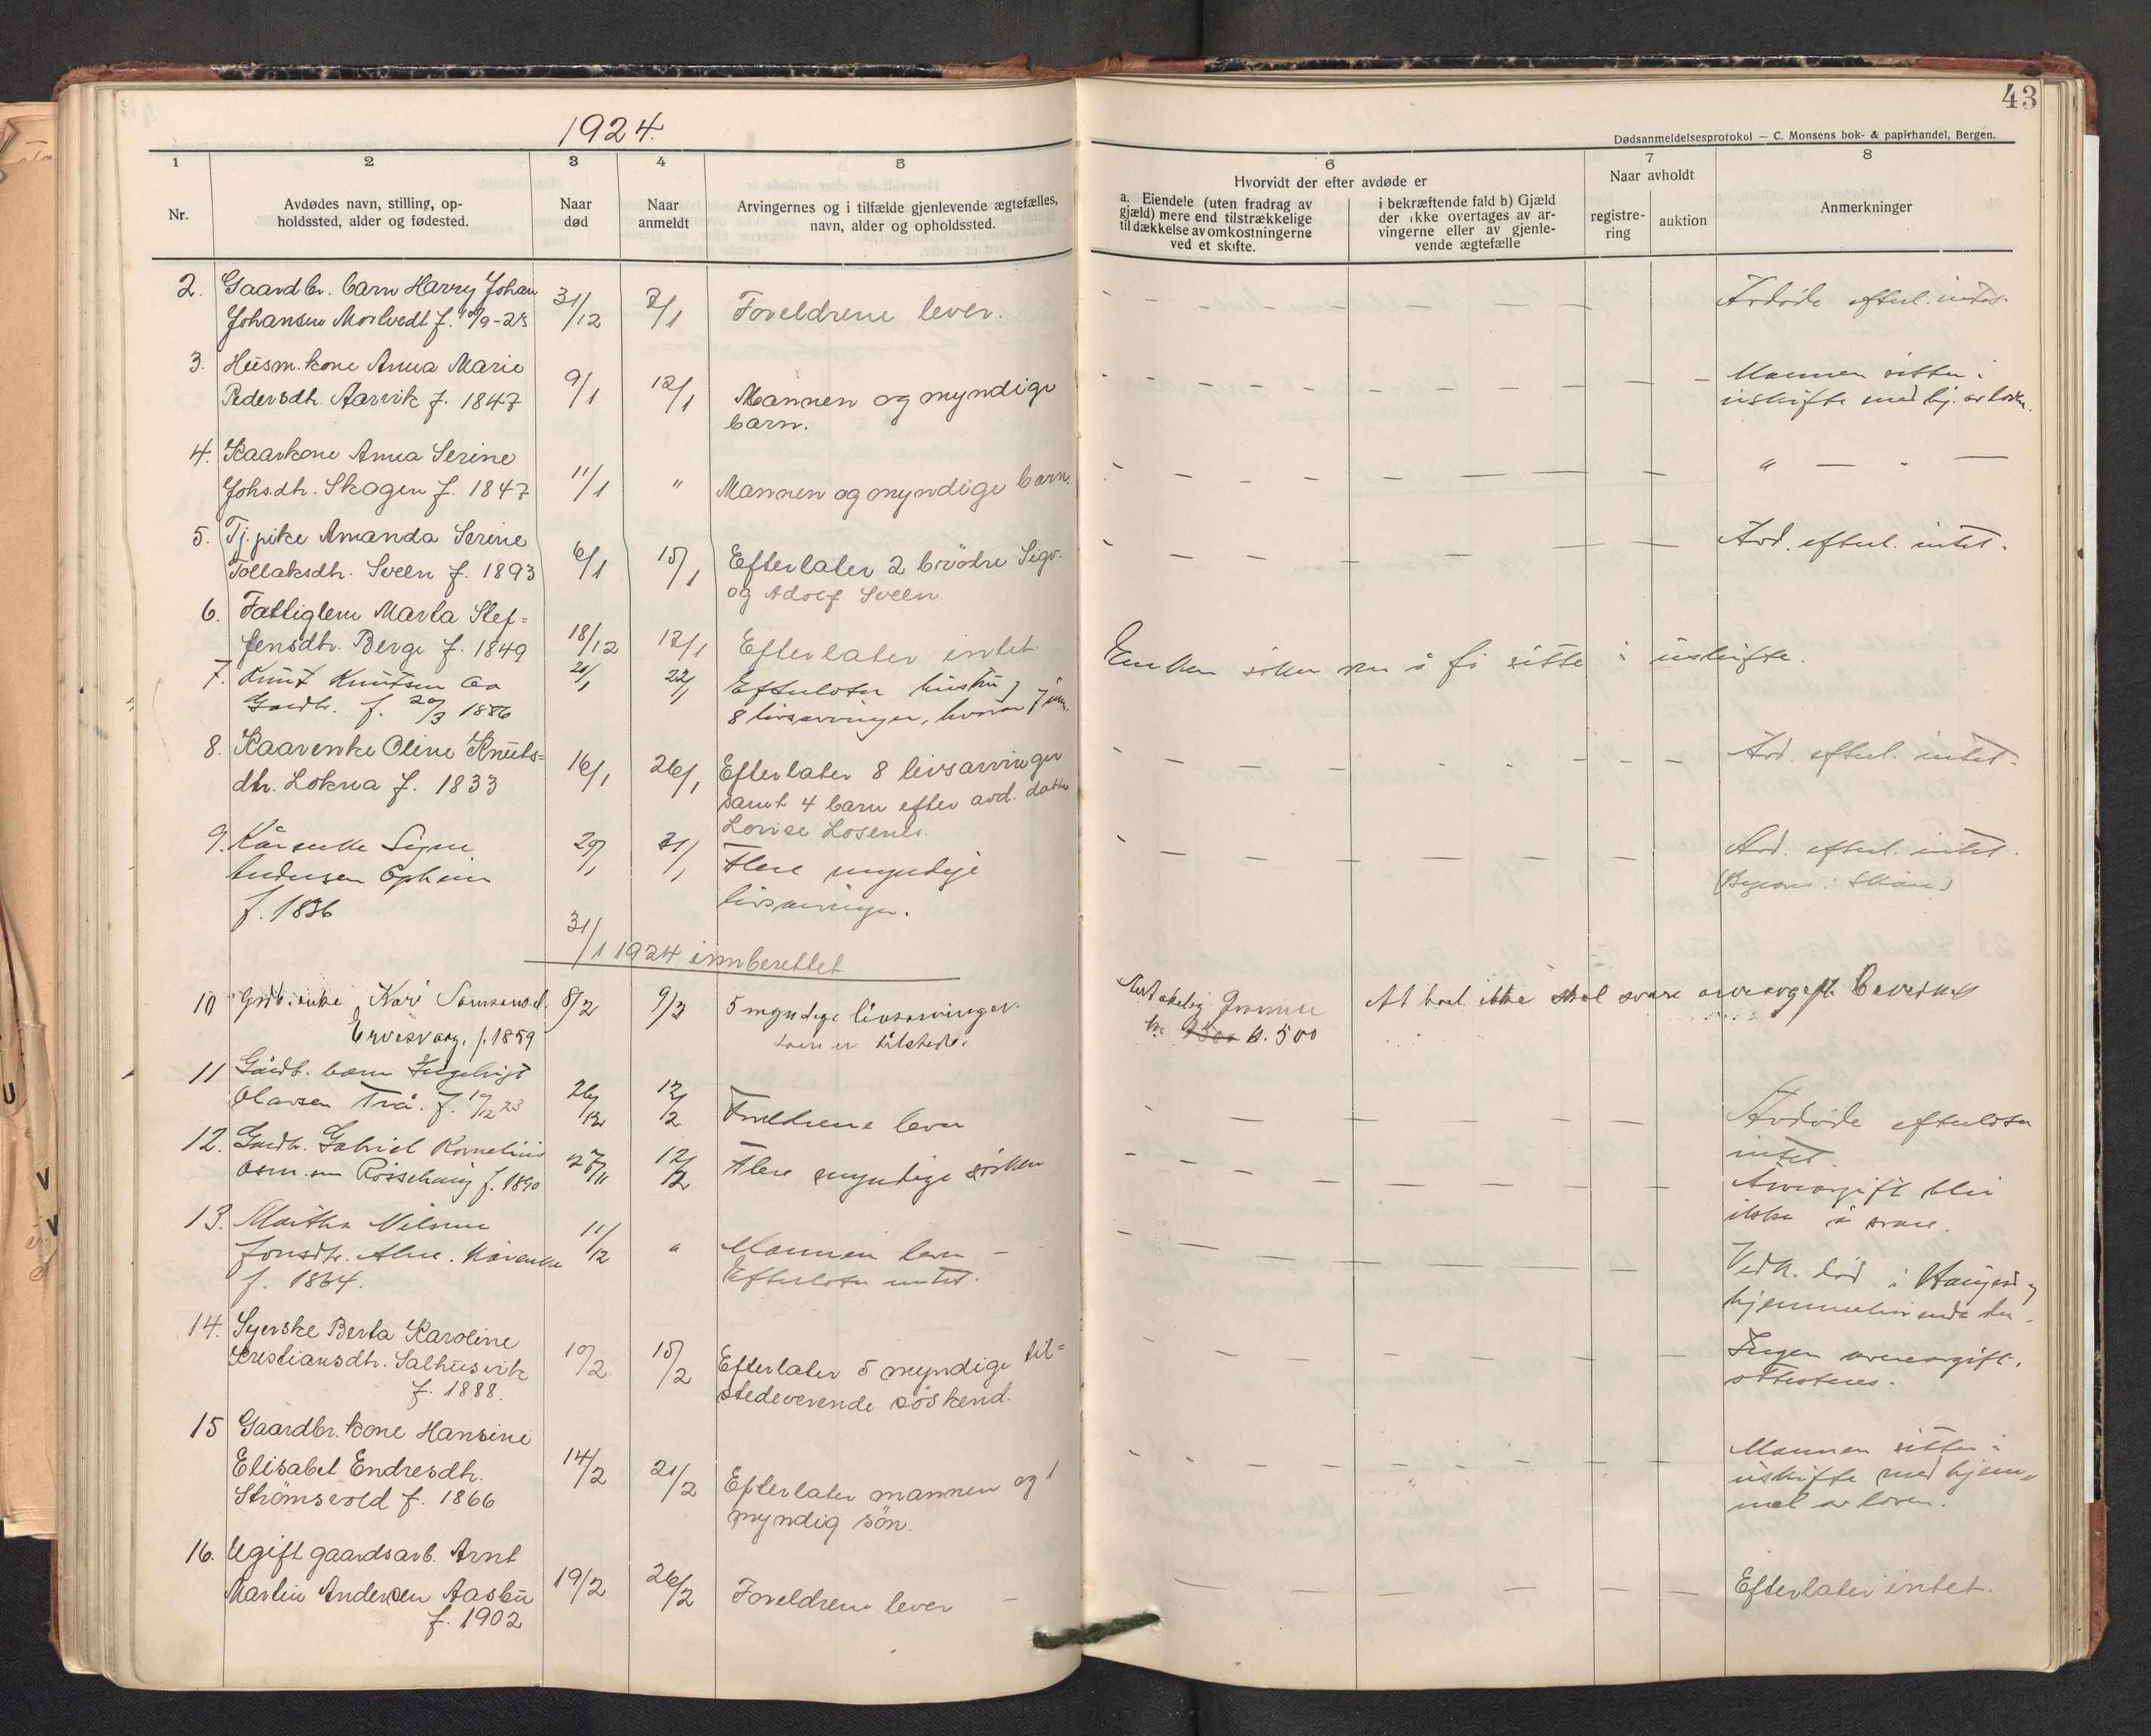 43
1924.
Dødsanmeldelsesprotokol — C. Monsens bok- & papirhandel, Bergen.
1 2 3 4 5 6 7 8
Nr.
Avdødes navn, stilling, op-
holdssted, alder og fødested.
Naar
død
Naar
anmeldt
Arvingernes og i tilfælde gjenlevende ægtefælles,
navn, alder og opholdssted.
Hvorvidt der efter avdøde er
a. Eiendele (uten fradrag av
gjæld) mere end tilstrækkelige
til dækkelse av omkostningerne
ved et skifte.
i bekræftende fald b) Gjæld
der ikke overtages av ar-
vingerne eller av gjenle-
vende ægtefælle
Naar avholdt
registre-
ring
auktion
Anmerkninger
2. Gaardbr. barn Harry Johan
Johansen f. 9-23
31/12 7/1 Foreldrene lever.
Avdøde efterl. intet.
3. Husm. kone Anna Marie
Pedersdtr. Aarvik f. 1847
9/1 12/1 Mannen og myndige
barn.
Mannen sitter i
uskifte med hj. av loven.
4. Kaarkone Anna Serine
Johsdtr. Skogen f. 1847
11/1 " Mannen og myndige barn.
" — " —
5. Tj.pike Amanda Serine
Tollaksdtr. Sveen f. 1893
6/1 15/1 Efterlater 2 brødre Sigv.
og Adolf Sveen.
Avd. efterl. intet.
6. Fattiglem Marta Stef=
fensdtr. Berge f. 1849
18/12 17/1 Efterlater intet.
7. Knut Knutsen
Gardbr. f. 20/3 1886
21/1 22/1 Efterlater hustru og
8 livsarvinger, hvorav 7 um.
Enken søker om å få sitte i uskifte.
8. Kaarenke Oline Knuts=
dtr. Lokna f. 1833
16/1 26/1 Efterlater 8 livsarvinger
samt 4 barn efter avd. datter
Lovise Losenes.
Avd. efterl. intet.
9. Kårenke Signe
Andersen Opheim
f. 1836
29/1 31/1 Flere myndige
livsarvinger.
Avd. efterl. intet.
31/1 1924 innberettet.
10 Grdb. enke Kari Samsonsd.
Ervesvaag. f. 1859
8/2 9/3 5 myndige livsarvinger.
som er tilstede.
kr. 500
At boet ikke skal svare arveavgift bevidnes
11 Gårdb. barn Ingebrigt
Olavsen Trå. f. 12 23
26/12 12/2 Foreldrene lever
Avdøde efterlater
intet.
12. Gardbr. Gabriel Kornelius
f. 1890
27/11 12/2 Flere myndige sösken
Arveavgift blir
ikke å svare.
13. Martha Nilsine
Jonsdtr. . Kårenke
f. 1864.
11/12 " Mannen lever –
Efterlater intet.
Vedk. død i Haugesd og
hjemmehørende der.
14. Syerske Berta Karoline
Kristiansdtr. Salhusvik
f. 1888.
10/2 15/2 Efterlater 5 myndige til=
stedeverende söskend.
Ingen arveavgift.
attesteres.
15 Gaardbr. kone Hansine
Elisabet Endresdtr.
Strömsvold f. 1866
14/2 21/2 Efterlater mannen og 1
myndig sön.
Mannen sitter i
uskifte med hjem=
mel av loven.
16. Ugift gaardsarb. Arnt
Martin Andersen Aasbu
f. 1902
19/2 26/2 Foreldrene lever –
Efterlater intet.